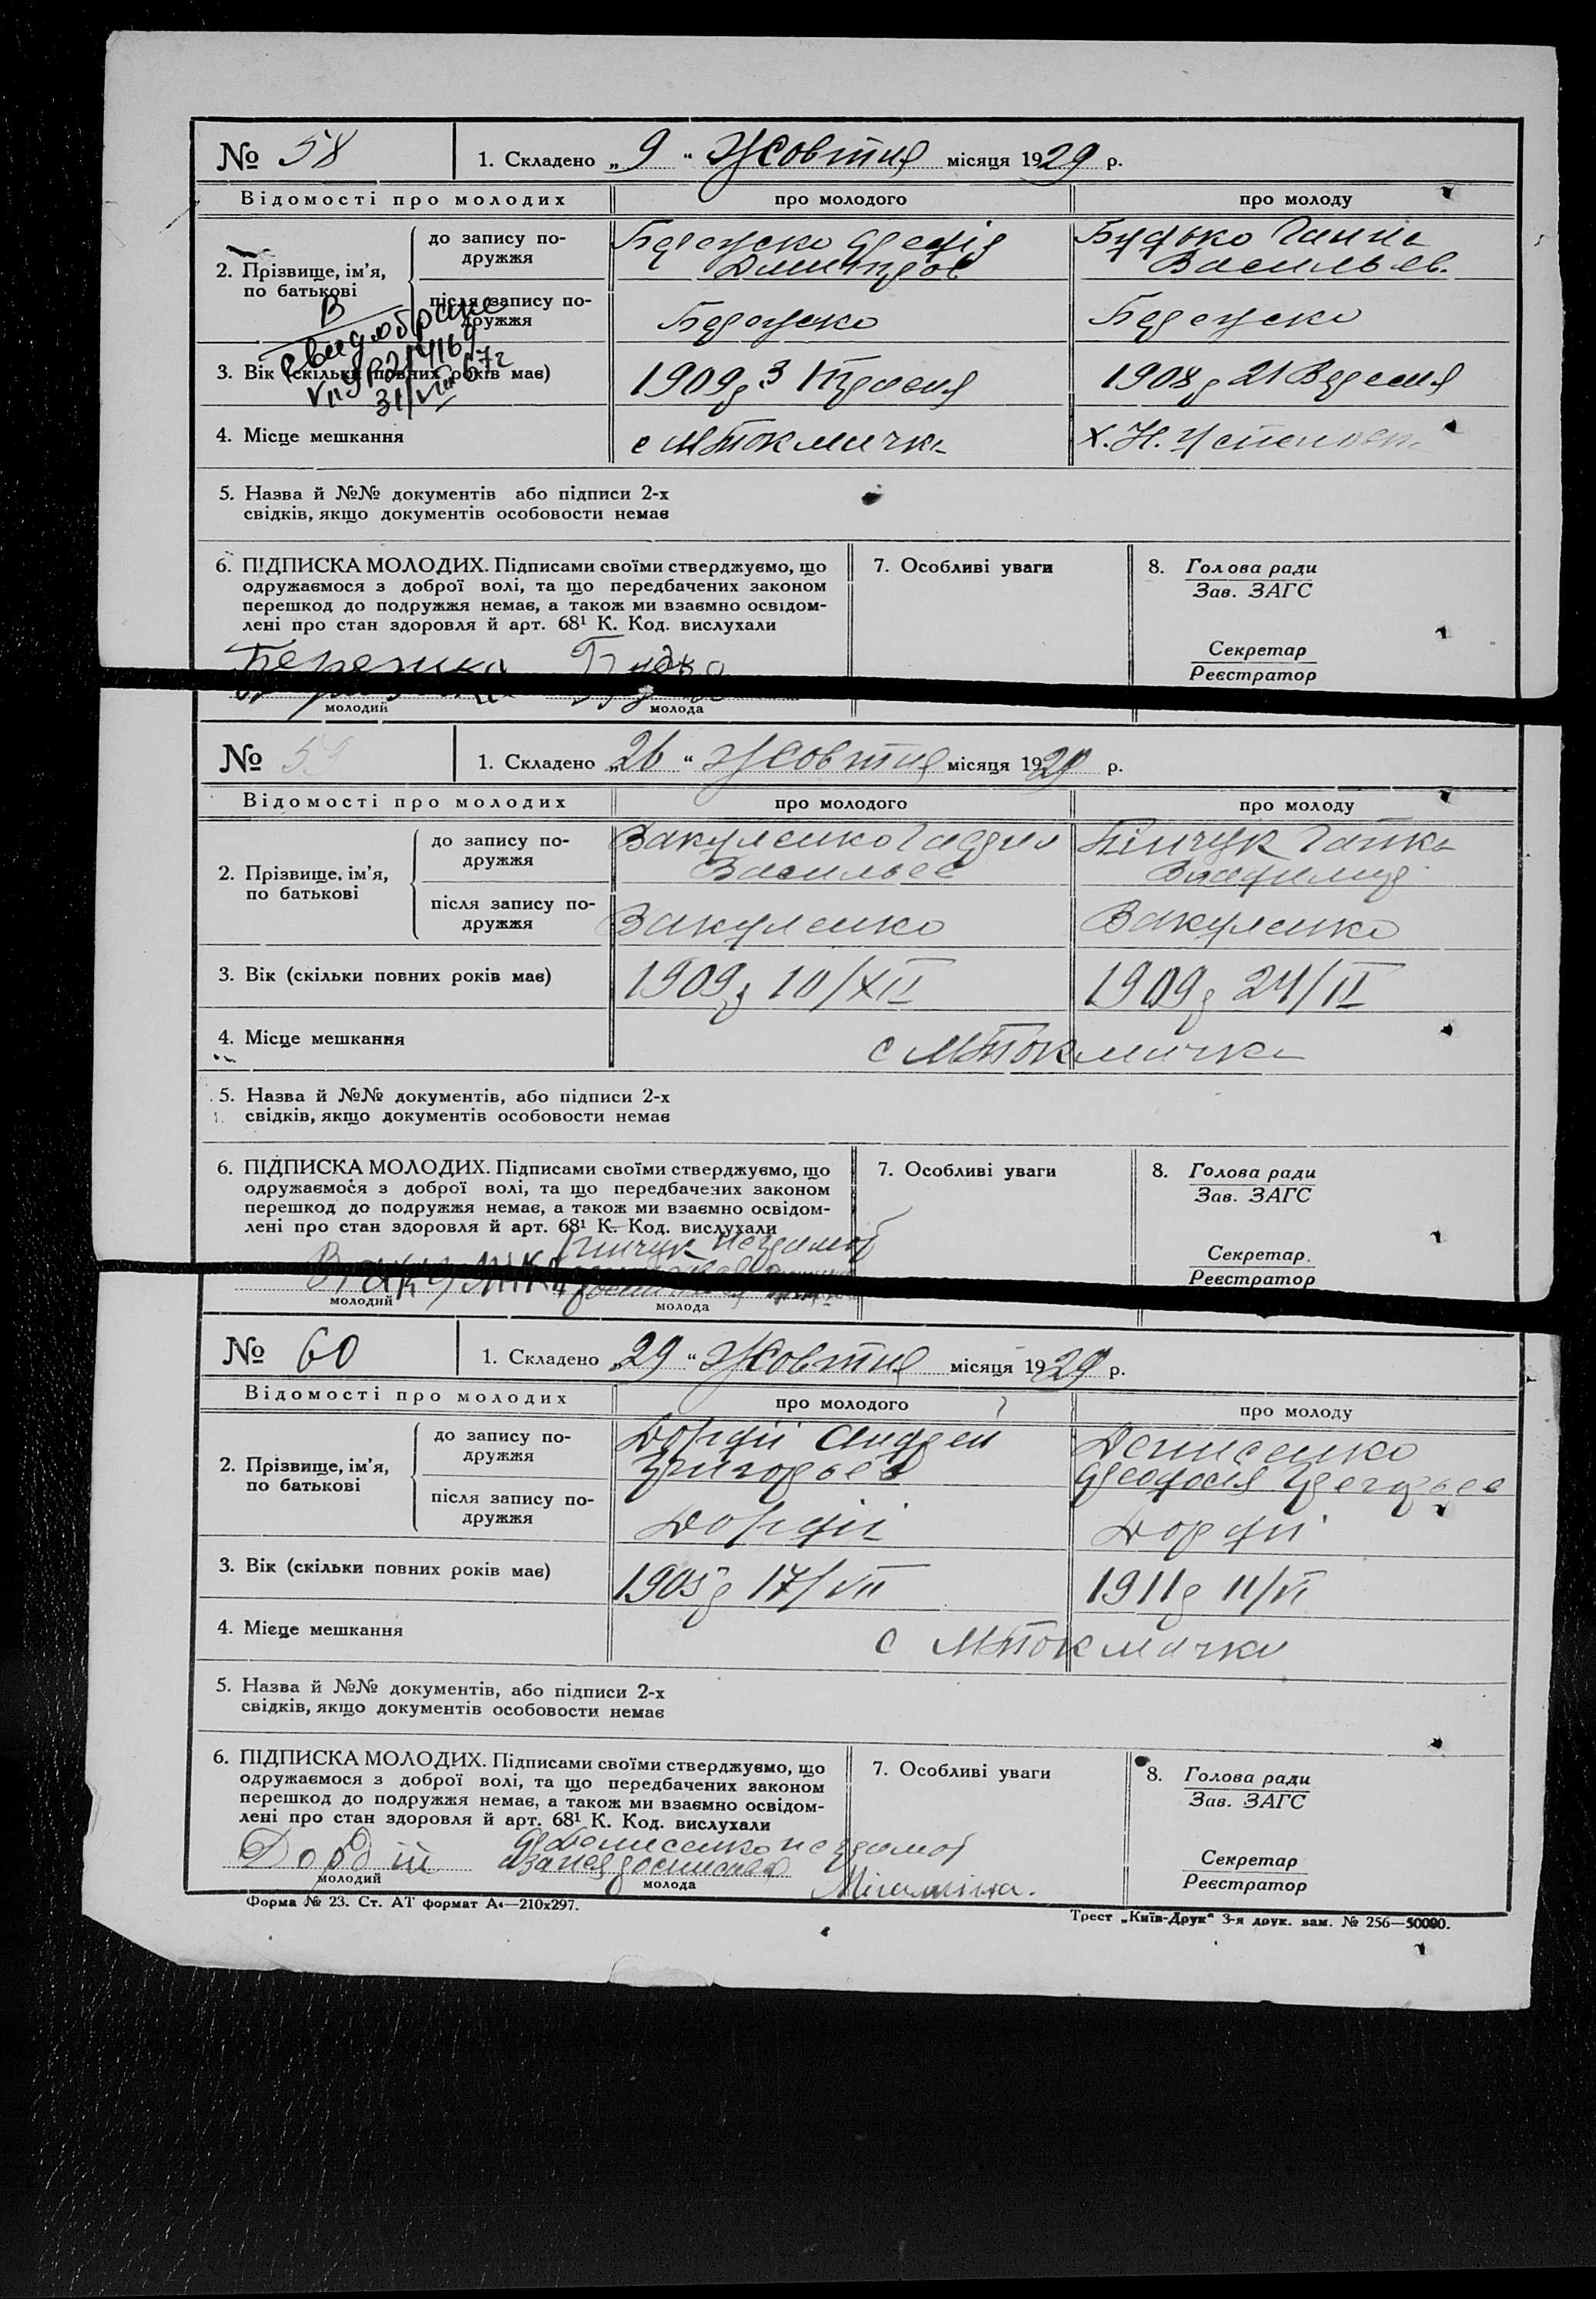 № 58
1. Складено „9“ Жовтня місяця 1929 р.
Відомості про молодих
про молодого
про молоду
2. Прізвище, ім'я, по батькові
до запису подружжя
Будько Ганна
Васильев.
після запису подружжя
3. Вік (скільки повних років має)
1909р 3 Травня
1908р 21 Вересня
4. Місце мешкання
с МТокмачка
х. Н.
5. Назва й №№ документів або підписи 2-х
свідків, якщо документів особовости немає
6. ПІДПИСКА МОЛОДИХ. Підписами своїми стверджуємо, що
одружаємося з доброї волі, та що передбачених законом
перешкод до подружжя немає, а також ми взаємно освідом-
лені про стан здоровля й арт. 68¹ К. Код. вислухали
7. Особливі уваги
8. Голова ради
Зав. ЗАГС
Секретар
Реєстратор
Будко
молодий
молода
№ 59
1. Складено „26“ Жовтня місяця 1929 р.
Відомості про молодих
про молодого
про молоду
2. Прізвище, ім'я, по батькові
до запису подружжя
Вакуленко Гаврил
Васильев
Гапка
після запису подружжя
Вакуленко
Вакуленко
3. Вік (скільки повних років має)
1909р 10/XII
1909р 24/II
4. Місце мешкання
с МТокмачка
5. Назва й №№ документів, або підписи 2-х
свідків, якщо документів особовости немає
6. ПІДПИСКА МОЛОДИХ. Підписами своїми стверджуємо, що
одружаємося з доброї волі, та що передбачених законом
перешкод до подружжя немає, а також ми взаємно освідом-
лені про стан здоровля й арт. 68¹ К. Код. вислухали
7. Особливі уваги
8. Голова ради
Зав. ЗАГС
Секретар.
Реєстратор
молодий
молода
№ 60
1. Складено „29“ Жовтня місяця 1929 р.
Відомості про молодих
про молодого
про молоду
2. Прізвище, ім'я, по батькові
до запису подружжя
Дордій Андрей
Григорьев
Денисенко
Феодосія
після запису подружжя
Дордій
Дордій
3. Вік (скільки повних років має)
1905р 17/VII
1911р 11/VI
4. Місце мешкання
с МТокмачка
5. Назва й №№ документів, або підписи 2-х
свідків, якщо документів особовости немає
6. ПІДПИСКА МОЛОДИХ. Підписами своїми стверджуємо, що
одружаємося з доброї волі, та що передбачених законом
перешкод до подружжя немає, а також ми взаємно освідом-
лені про стан здоровля й арт. 68¹ К. Код. вислухали
7. Особливі уваги
8. Голова ради
Зав. ЗАГС
Секретар
Реєстратор
Дордій
Денисенко
молодий
молода
Форма № 23. Ст. АТ формат А₄—210х297.
Трест „Київ-Друк“ 3-я друк. зам. № 256—50000.